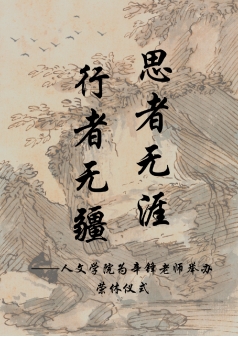 思者无涯
行者无疆
——人文学院为辛锋老师举办
荣休仪式